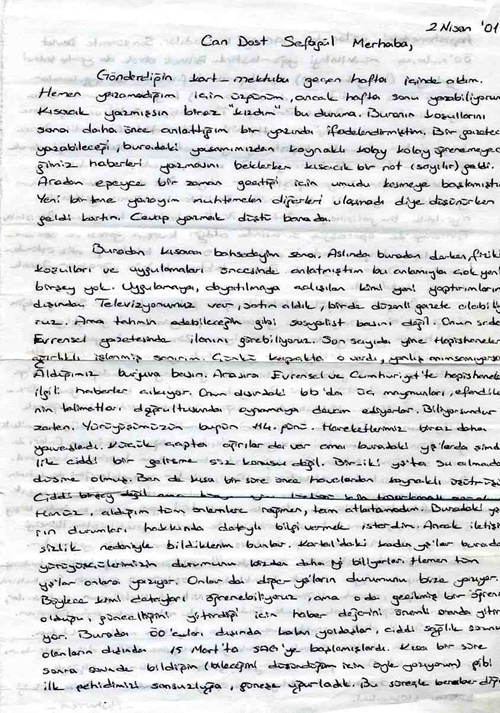 2 Nisan '01
Can Dost Sefagül Merhaba,
Gönderdiğin kart-mektubu geçen hafta içinde aldım.
Hemen yazamadığım için üzgünüm, ancak hafta sonu yazabiliyorum
Kısacık yazmışsın biraz "kızdım" bu duruma. Buranın koşullarını
sana daha önce anlattığım bir yazımda ifadelendirmiştim. Bir gazeteci
yazabileceği, buradaki yaşamımızdan kaynaklı kolay kolay öğrenemeyece
ğimiz haberleri yazmasını beklerken kısacık bir not (sayılır) geldi.
Aradan epeyce bir zaman geçtiği için umudu kesmeye başlamıştı
Yeni birtane yazayım muhtemelen diğerleri ulaşmadı diye düşünürken
geldi kartın. Cevap yazmak düştü bana da.
Buradan kısaca bahsedeyim sana. Aslında buradan derken, fiziki
koşulları ve uygulamaları öncesinde anlatmıştım bu anlamıyla çok yeni
birşey yok. Uygulamaya, dayatılmaya çalışılan kimi yeni yaptırımların
dışında. Televizyonumuz var, satın aldık, birde düzenli gazete alabiliyo
ruz. Ama tahmin edebileceğin gibi sosyalist basını değil. Onun
Evrensel gazetesinde ilanını görebiliyoruz. Son sayıda yine Hapishaneler
ağırlıklı işlenmiş sanırım. Çünkü kapakta o vardı, yanlış anımsamıyorsam
Aldığımız burjuva basın. Arasıra Evrensel ve Cumhuriyet'te hapishaneler
ilgili haberler çıkıyor. Onun dışındaki bb'da üç maymunları, efendile
nin talimatları doğrultusunda oynamaya devam ediyorlar. Biliyorsundur
zaten. Yürüyüşümüzün bugün 114. günü. Hareketlerimiz biraz daha
yavaşladı. Küçük çapta ağrılar da var ama buradaki yş'larda
ciddi bir gelişme söz konusu değil. Bir-iki yş'ta su almada
düşme olmuş. Ben de kısa bir süre önce havalardan kaynaklı
Henüz, aldığım tüm önlemlere rağmen, tam atlatamadım. Buradaki yş
ın durumları hakkında detaylı bilgi vermek isterdim. Ancak iletişim
sizlik nedeniyle bildiklerim bunlar. Kartal'daki kadın yş'lar burada
yürüyüşçülerimizin durumunu bizden daha iyi biliyorlar. Hemen tüm
yş'lar onlara yazıyor. Onlar da diğer yş'ların durumunu bize yazıyor.
Böylece kimi detayları öğrenebiliyoruz, ama o da gecikmiş bir öğren
olduğu, güncelliğini yitirdiği için haber değerini önemli oranda yitiri
yor. Burada ÖO'cuları dışında kalan yoldaşlar, ciddi sağlık sorunu
olanların dışında 15 Mart'ta SAG'ye başlamışlardı. Kısa bir süre
sonra senin de bildiğin (bileceğini düşündüğüm için öyle yazıyorum) gibi
ilk şehidimizi sonsuzluğa, güneşe uğurladık. Bu süreçle beraber diğe